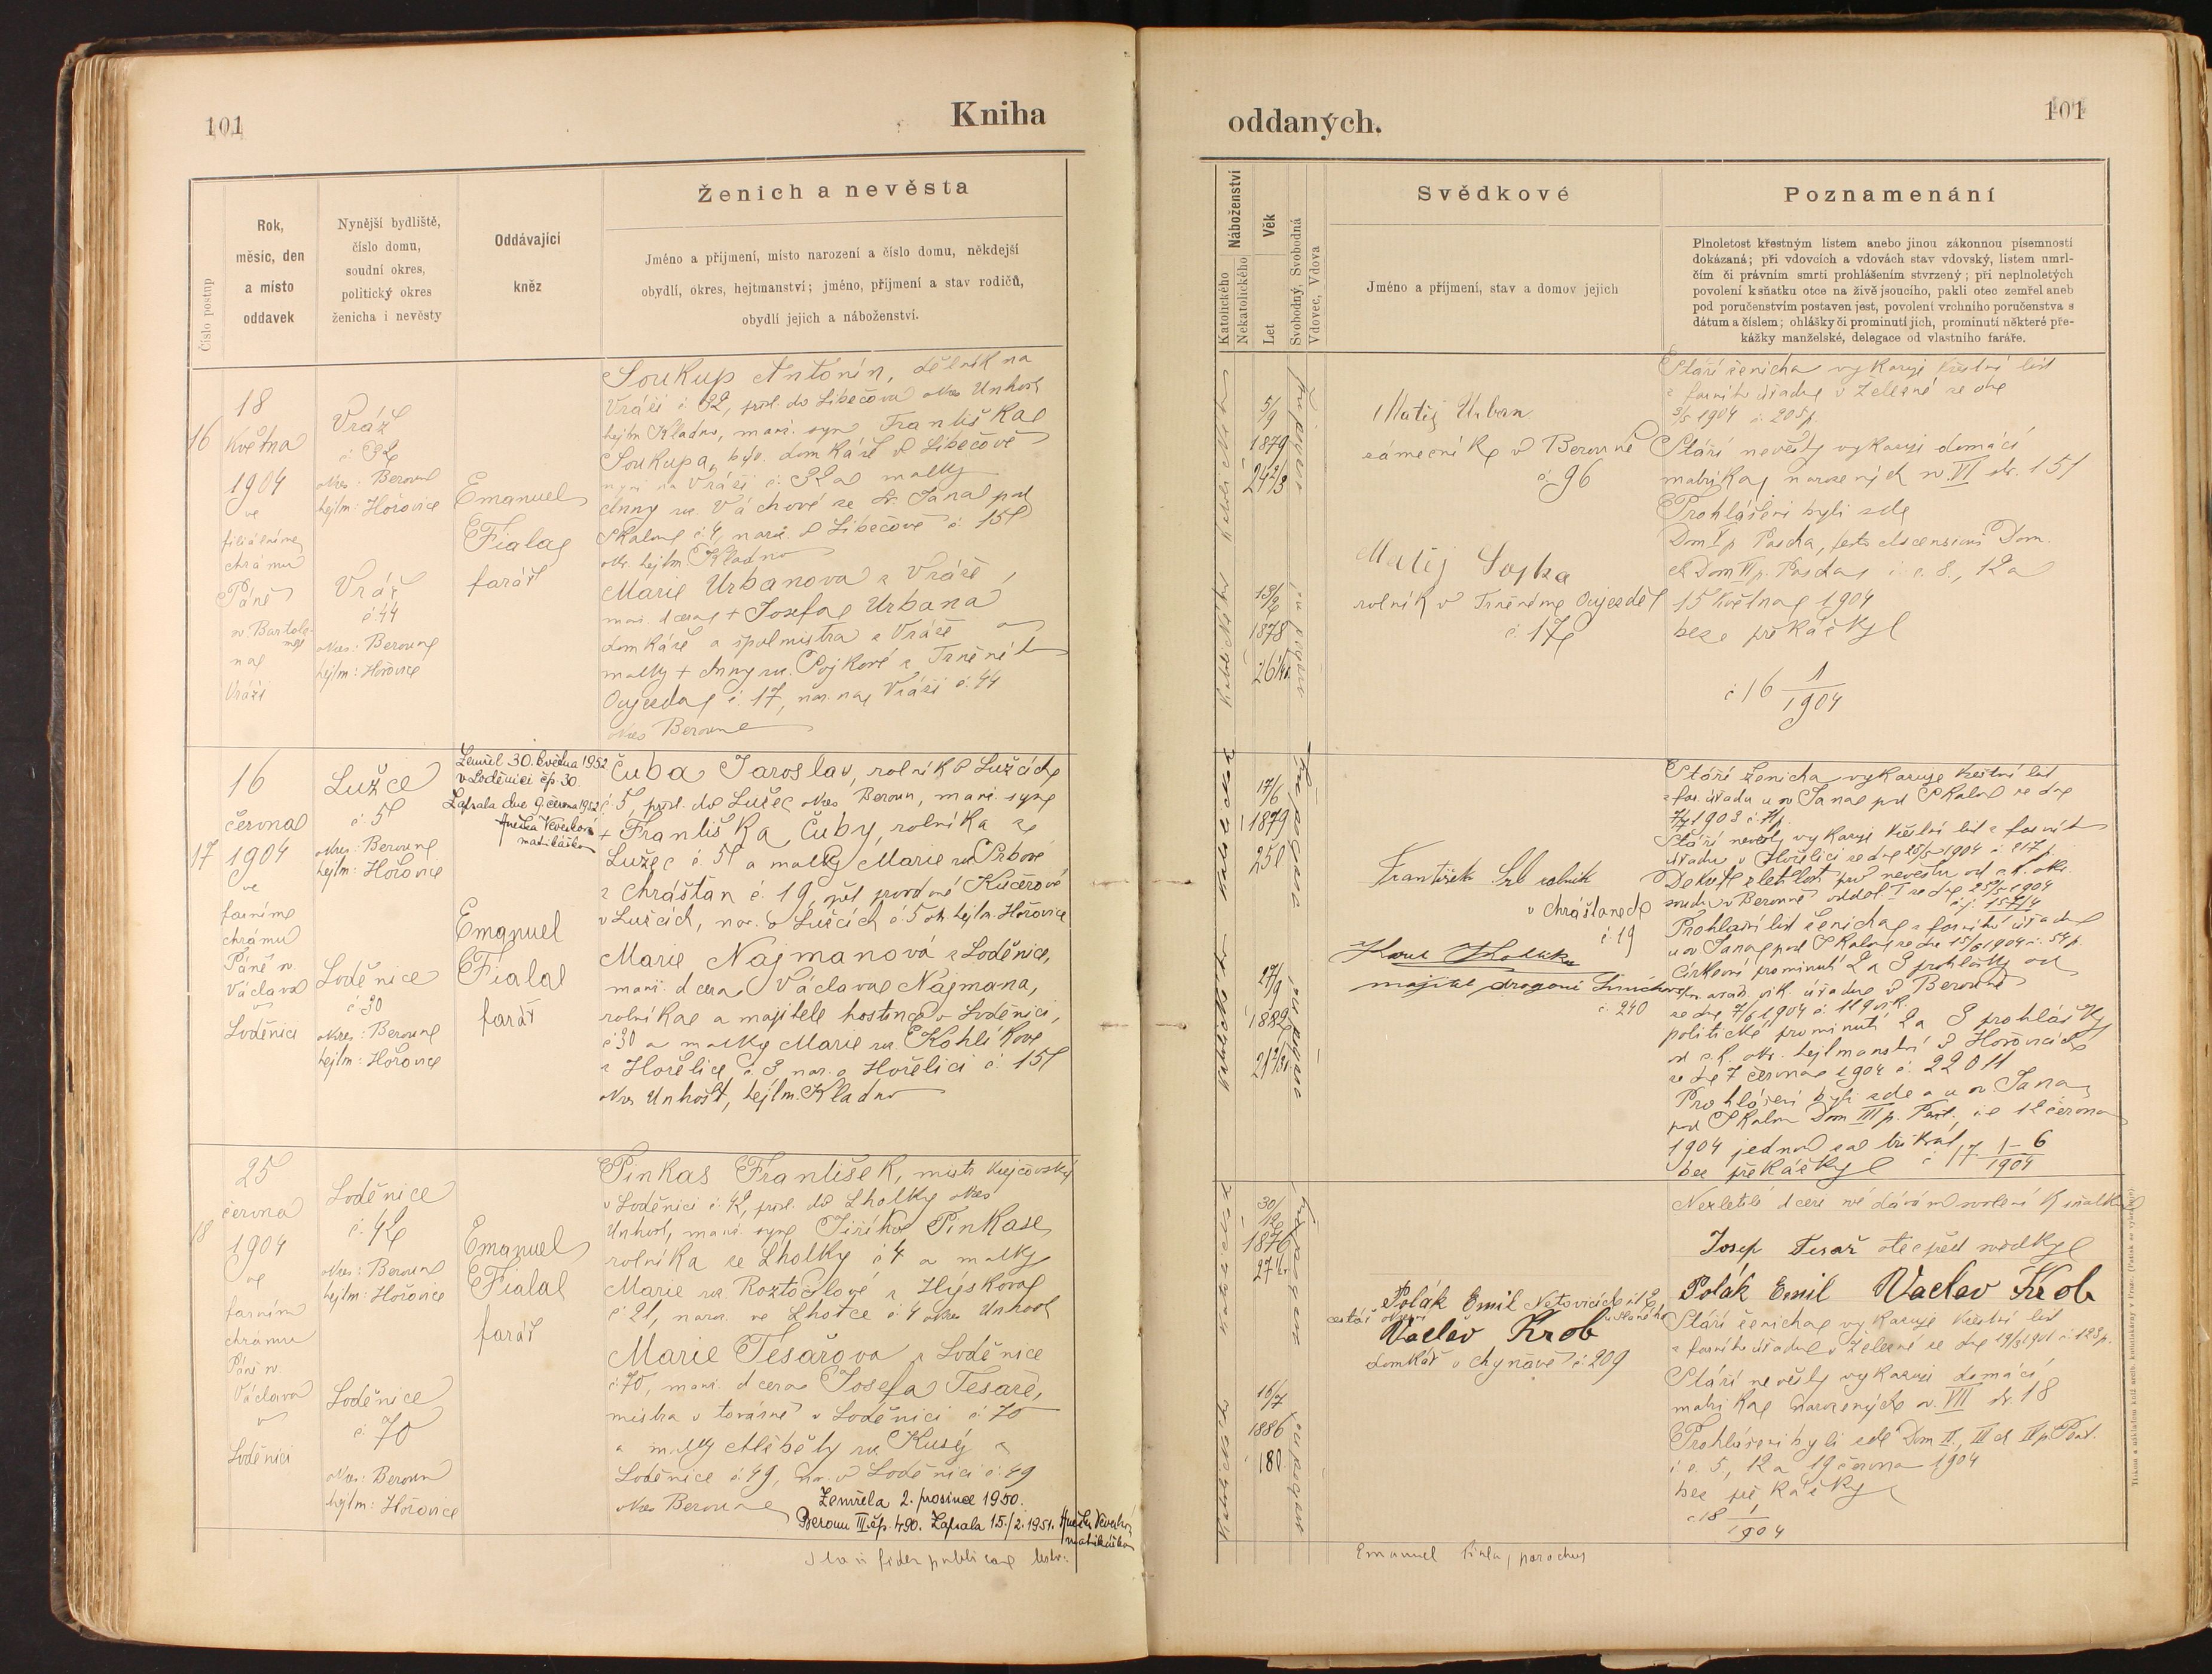 101
Kniha
Číslo postup
Rok,
měsíc, den
a místo
oddavek
Nynější bydliště,
číslo domu,
soudní okres,
politický okres
ženicha i nevěsty
Oddávající
kněz
Ženich a nevěsta
Jméno a příjmení, místo narození a číslo domu, někdejší
obydlí, okres, hejtmanství; jméno, příjmení a stav rodičů,
obydlí jejich a náboženství.
16
18
května
1904
ve
filiálním
chrámu
Páně
sv. Bartolo-
měj
na
Vráži
Vráž
č. 32
okres: Beroun
hejtm: Hořovice
Vráž
č. 44
okres: Beroun
hejtm: Hořovice
Emanuel
Fiala
farář
Soukup Antonín, dělník na
Vráži č. 32, přísl. do Libečova okres Unhošť
hejtm Kladno, manž. syn Františka
Soukupa, býv. domkáře v Libečově
nyní na Vráži č. 32 a matky
Anny roz. Váchové ze Sv. Jana pod
Skalou č. 4, naroz. v Libečově č. 15
okr. hejtm Kladno
Marie Urbanova z Vráže,
man. dcera + Josefa Urbana
domkáře a mistra z Vráže a
matky + Anny roz. Sojkové z Trněného
Oujezda č. 17, nar. na Vráži č. 44
okres Beroun
17
16
června
1904
ve
farním
chrámu
Páně sv.
Václava
v
Loděnici
Lužce
č. 5
okres: Beroun
hejtm: Hořovice
Loděnice
č. 30
okres: Beroun
hejtm: Hořovice
Zemřel 30. května 1952
v Loděnici čp. 30.
Zapsala dne 9. června 1952
Anežka Veverková
matrikářka
Emanuel
Fiala
farář
Čuba Jaroslav, rolník v Lužcích
č. 5, přísl. do Lužec okres Beroun, manž. syn
+ Františka Čuby, rolníka ze
Lužec č. 5 a matky Marie roz. Srbové
z Chrášťan č. 19, opět provdané Kučerové
v Lužcích, nar. v Lužcích č. 5 okr. hejtm. Hořovice
Marie Najmanová z Loděnice,
manž. dcera Václava Najmana,
rolníka a majitele hostince v Loděnici,
č. 30 a matky Marie roz. Kohlíkové
z Hořelice č. 3 nar. v Hořelici č. 15
okres Unhošť, hejtm. Kladno
18
25
června
1904
ve
farním
chrámu
Páně sv.
Václava
v
Loděnici
Loděnice
č. 42
okres: Beroun
hejtm: Hořovice
Loděnice
č. 70
okres: Beroun
hejtm: Hořovice
Emanuel
Fiala
farář
Pinkas František, mistr krejčovský
v Loděnici č. 42, přísl. do Lhotky okres
Unhošť, manž. syn Jiřího Pinkase
rolníka ze Lhotky č. 4 a matky
Marie roz. Roztočilové z Hýskova
č. 21, naroz. ve Lhotce č. 4 okres Unhošť
Marie Tesařova z Loděnice
č. 70, manž. dcera Josefa Tesaře,
mistra v továrně v Loděnici č. 70
a matky Alžběty roz. Kusý z
Loděnice č. 49, nar. v Loděnici č. 49
okres Beroun
Zemřela 2. prosince 1950.
Beroun III. čp. 490. Zapsala 15./2. 1951. Anežka Veverková
matrikářka
Ita in fidem publicam testor:
oddaných.
101
Náboženství
Katolického
Nekatolického
Věk
Let
Svobodný, Svobodná
Vdovec, Vdova
Svědkové
Jméno a příjmení, stav a domov jejich
Poznamenání
Plnoletost křestným listem anebo jinou zákonnou písemností
dokázaná; při vdovcích a vdovách stav vdovský, listem umrl-
čím či právním smrti prohlášením stvrzený; při neplnoletých
povolení k sňatku otce na živě jsoucího, pakli otec zemřel aneb
pod poručenstvím postaven jest, povolení vrchního poručenstva s
dátum a číslem; ohlášky či prominutí jich, prominutí některé pře-
kážky manželské, delegace od vlastního faráře.
Katolické
5/9
1879
24
Katolické
1878
26
Matěj Urban
zámečník v Berouně
č. 96
Matěj Sojka
rolník v Trněném Oujezdě
č. 17
Stáří ženicha vykazuje křestní list
z farního úřadu v Železné ze dne
1904 č. 205
Stáří nevěsty vykazuje domácí
matrika narozených sv. VI str. 151
Prohlášeni byli zde
Dom V p Pascha, festo Ascensionis Dom.
et Dom VI p. Pascha i. e. 8., 12 a
15 května 1904
beze překážky
č 16 1/1904
17/6
1879
25
27/9
1882
21
František Srb rolník
v Chrášťanech
č. 19
majitel drogerie Smíchov
č. 240
Stáří ženicha vykazuje křestní list
z far. úřadu u sv Jana pod Skalou ze dne
1903 č.
Stáří nevěsty vykazuje křestní list z farního
úřadu v Hořelici ze dne 25/5 1904 č. 117
Dekret zletilosti pro nevěstu od c. k. okr.
soudu v Berouně oddel. I ze dne 25/5 1904
Prohlašní list ženicha z farního úřadu
u sv Jana pod Skalou ze dne 15/6 1904 č. 54
Církevní prominutí 2 a 3 prohlášky od
vik. úřadu v Berouně
ze dne 7/6 1904 č. 119 vik.
politické prominutí 2 a 3 prohlášky
od c. k. okr. hejtmanství v Hořovicích
ze dne 7 června 1904 č. 22011
Prohlášeni byli zde a u sv Jana
pod Skalou Dom III p. Pent. i. e. 12 června
1904 jednou za třikrát,
bez překážky č 17 1-6/1904
30/12
1876
27
16/7
1886
18
Polák Emil
Vaclav Krob
domkář v Chyňavě č. 209
Nezletilé dceři mé dávám svolení k sňatku
Josef Tesař otec před svědky
Polák Emil Vaclav Krob
Stáří ženicha vykazuje křestní list
z farního úřadu v Železné ze dne 1901 č. 123
Stáří nevěsty vykazuje domácí
matrika narozených sv. VII str. 18
Prohlášeni byli zde Dom II., III et IV p. Pent.
i. e. 5, 12 a 19 června 1904
bez překážky
č 18 1/1904
Emanuel Fiala, parochus